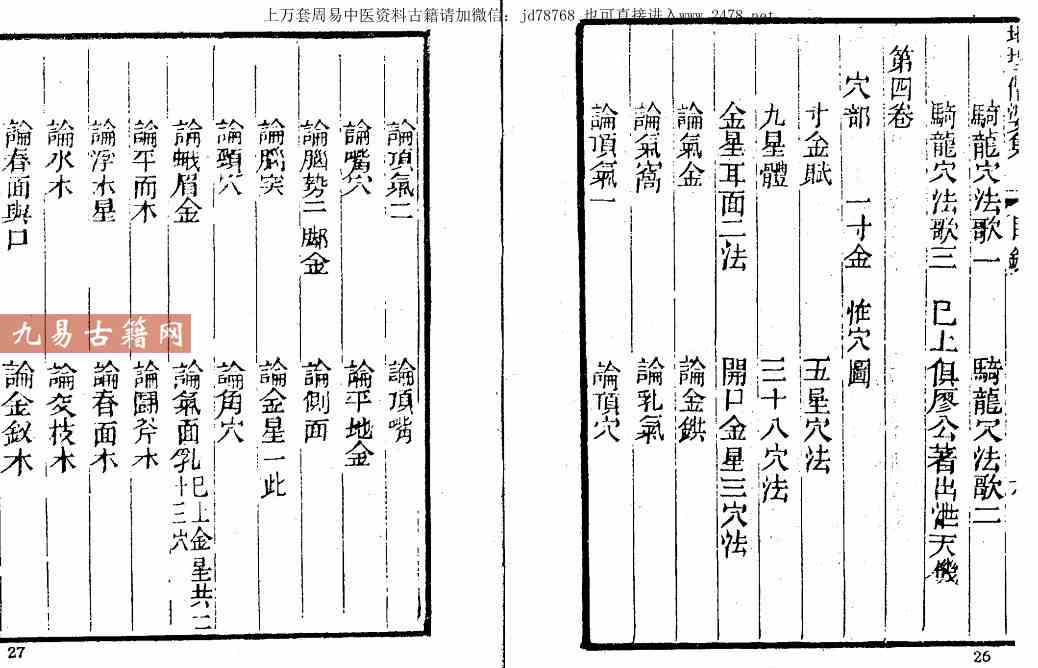 上万套周易中医资料古籍请加微信：jd78768 也可直接进入www.2478.net
目錄
騎龍穴法歌一 騎龍穴法歌二
騎龍穴法歌三 已上俱廖公著出泄天機
第四卷
穴部 一寸金 怪穴圖
寸金賦 五星穴法
九星體 三十八穴法
金星耳面二法 開口金星三穴法
論氣金 論金鉷
論氣窩 論乳氣
論頂氣一 論頂穴
26
論頂氣二 論頂嘴
論嘴穴 論平地金
論腦勢二腳金 論側面
論腦突 論金星一此
論頸穴 論角穴
論蛾眉金 論氣面乳 已上金星共二十三穴
論平面木 論鬪斧木
論浮木星 論春面木
論水木 論交枝木
論春面與口 論金釵木
27
九易古籍网